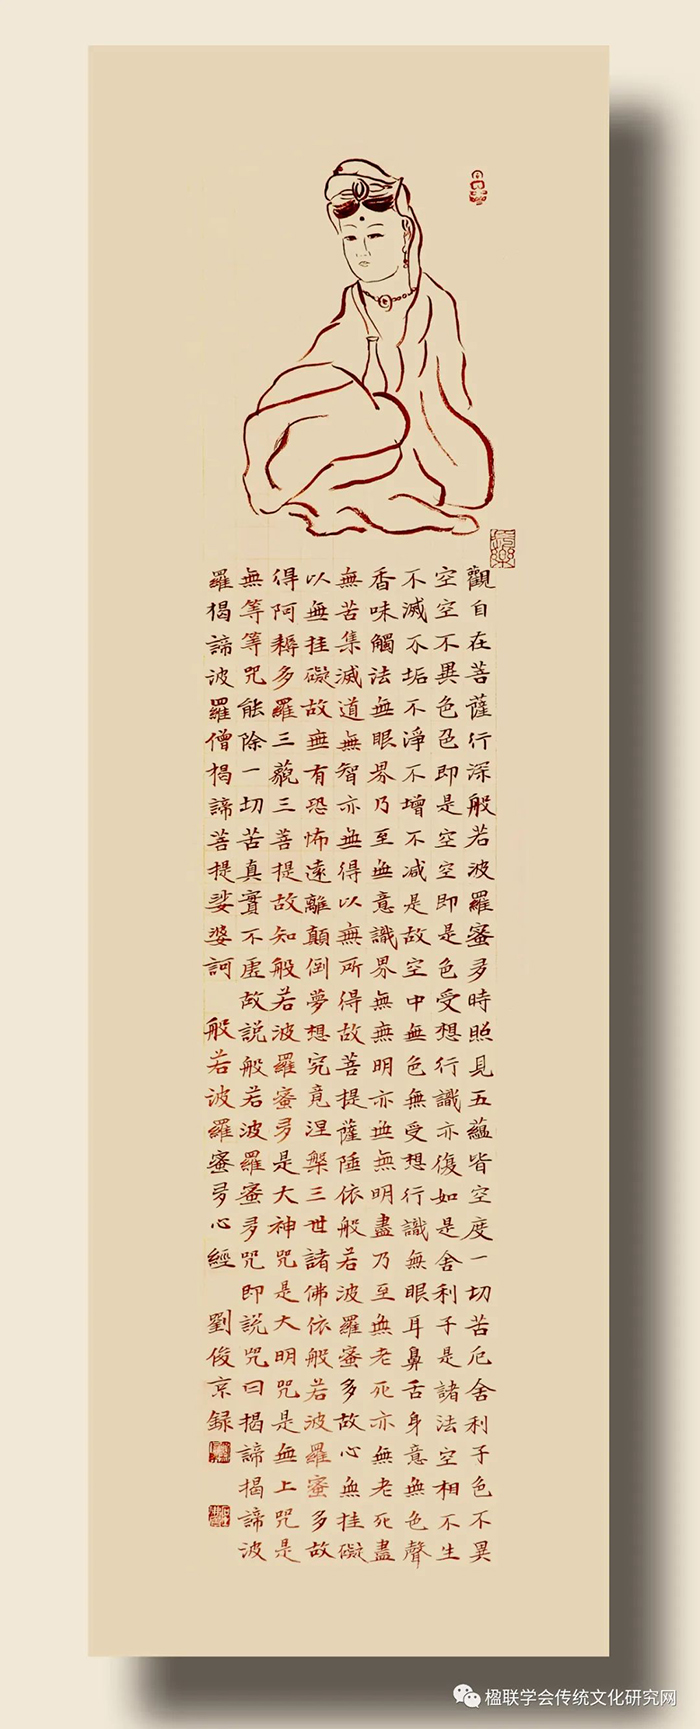 觀自在菩薩行深般若波羅蜜多時照見五蘊皆空度一切苦厄舍利子色不異
空空不異色色即是空空即是色受想行識亦復如是舍利子是諸法空相不生
不滅不垢不淨不增不减是故空中無色無受想行識無眼耳鼻舌身意無色聲
香味觸法無眼界乃至無意識界無無明亦無無明盡乃至無老死亦無老死盡
無苦集滅道無智亦無得以無所得故菩提薩陲依般若波羅蜜多故心無挂礙
以無挂礙故無有恐怖遠離顛倒夢想究竟涅槃三世諸佛依般若波羅蜜多故
得阿耨多羅三藐三菩提故知般若波羅蜜多是大神咒是大明咒是無上咒是
無等等咒能除一切苦真實不虛故説般若波羅蜜多咒即説咒曰揭諦揭諦波
羅揭諦波羅僧揭諦菩提娑婆訶 般若波羅蜜多心經 劉俊京録
楹联学会传统文化研究网